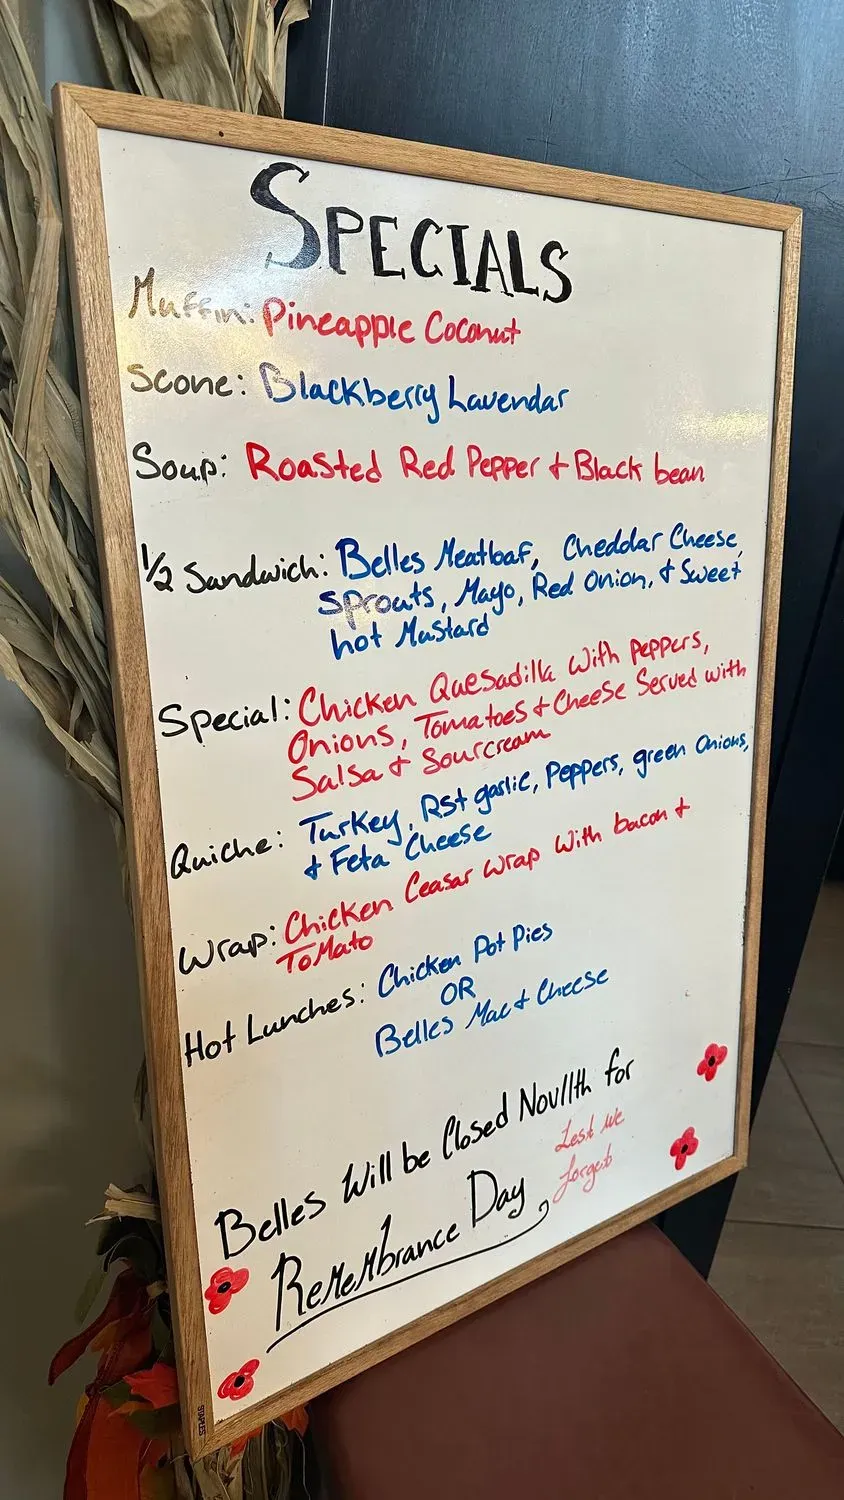 SPECIALS
Muffin: Pineapple Coconut
Scone: Blackberry Lavendar
Soup: Roasted Red Pepper + Black bean
1/2 Sandwich: Belles Meatloaf, Cheddar Cheese,
Sprouts, Mayo, Red Onion, + Sweet
hot Mustard
Special: Chicken Quesadilla With Peppers,
Onions, Tomatoes + Cheese Served with
Salsa + Sourcream
Quiche: Turkey, RSt garlic, Peppers, green Onions,
+ Feta Cheese
Wrap: Chicken Ceasar Wrap With bacon +
ToMato
Hot Lunches: Chicken Pot Pies
OR
Belles Mac + Cheese
Belles Will be Closed Nov11th for
Remembrance Day
Lest We
forget
STAPLES